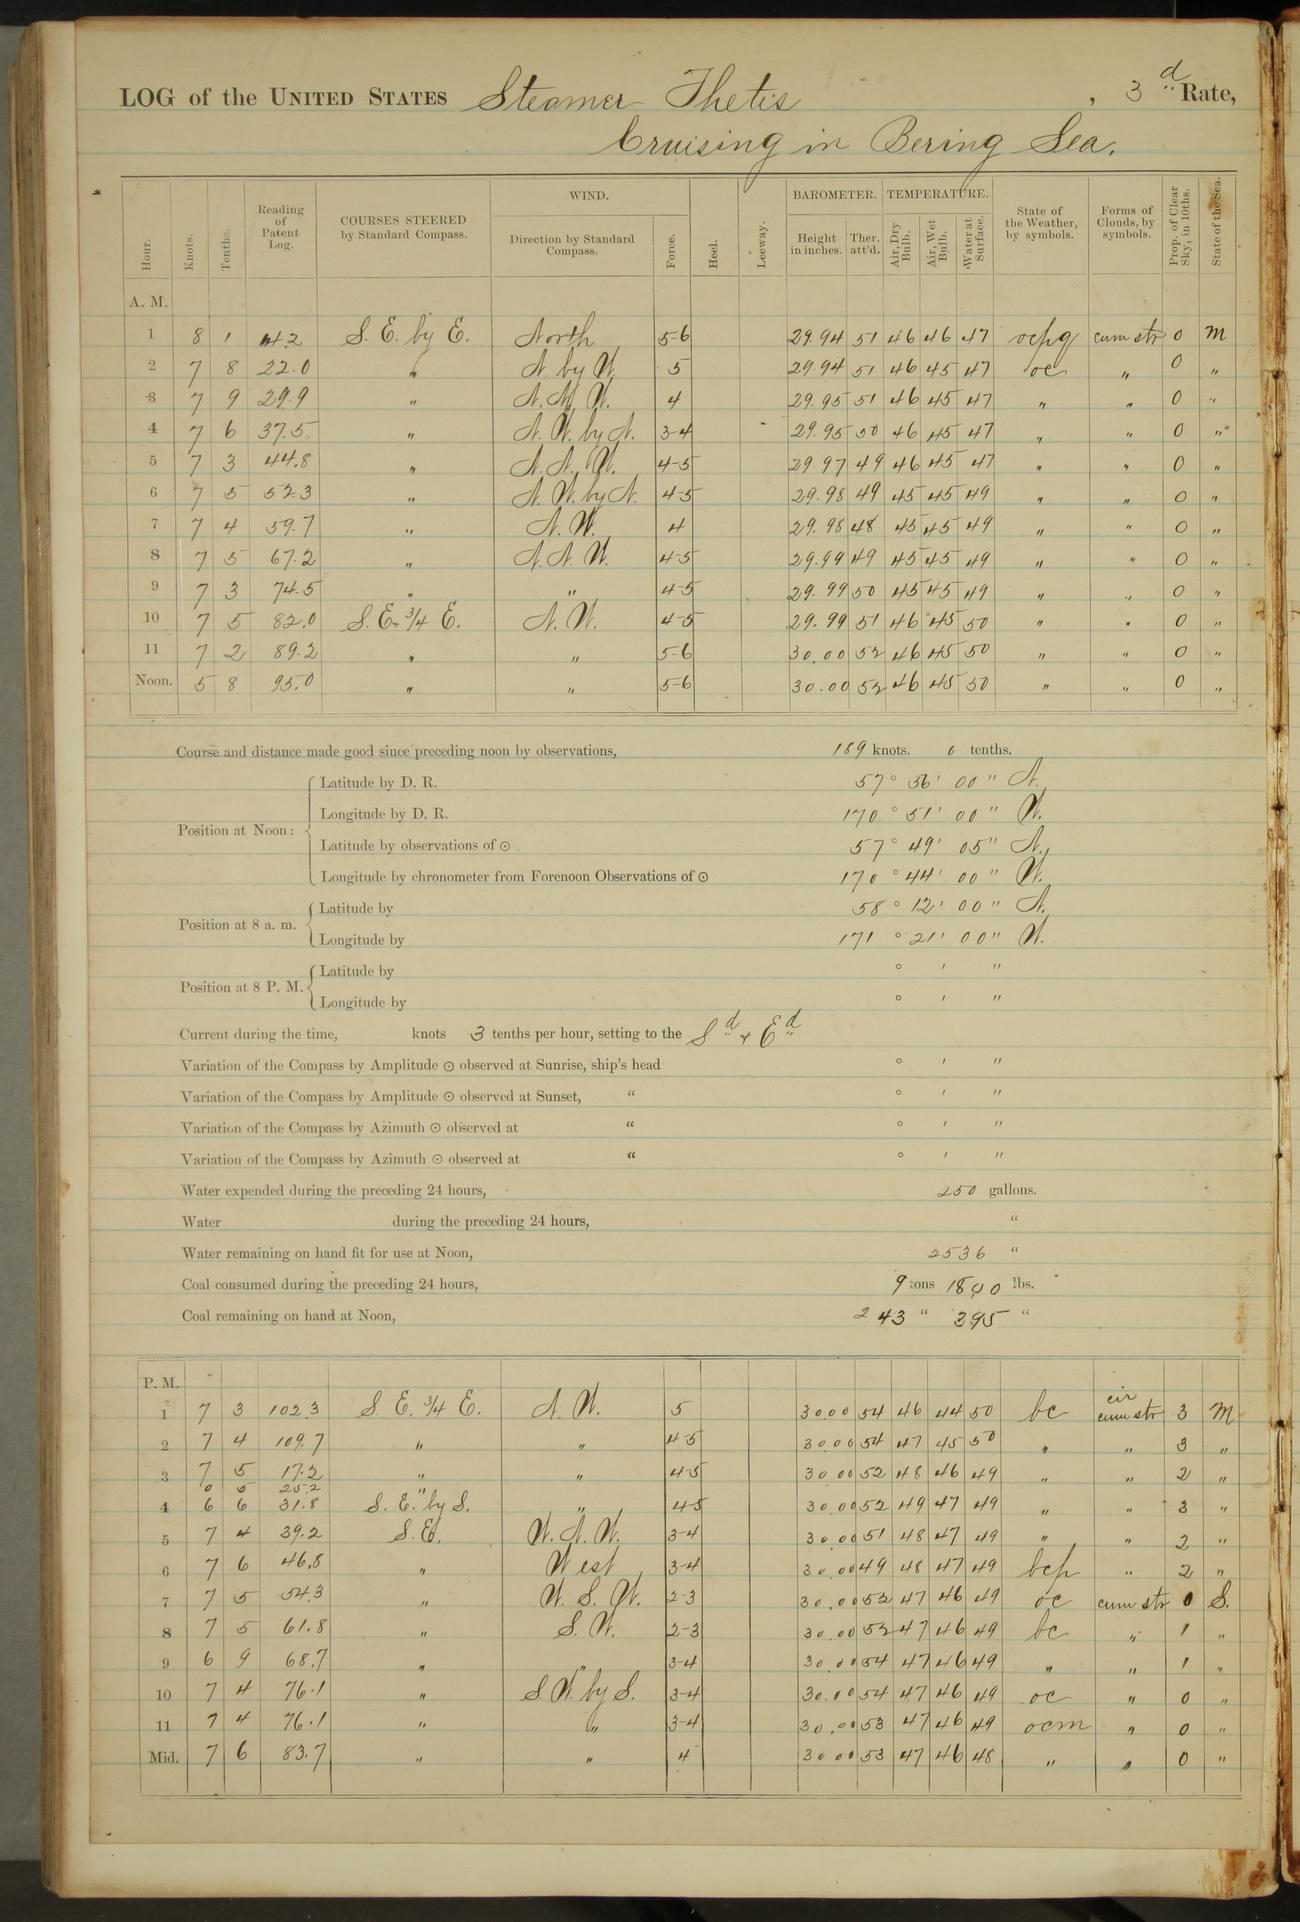 LOG of the UNITED STATES Steamer Thetis , 3d Rate,
Cruising in Bering Sea.
Hour. Knots. Tenths. Reading of Patent Log. COURSES STEERED by Standard Compass. WIND. Direction by Standard Compass. Force. Heel. Leeway. BAROMETER. Height in inches. Ther. att'd. TEMPERATURE. Air, Dry Bulb. Air, Wet Bulb. Water at Surface. State of the Weather, by symbols. Forms of Clouds, by symbols. Prop. of Clear Sky, in 10ths. State of the Sea.
A. M.
1 8 1 S. E. by E. North 5-6 29.94 51 46 46 47 ocpq cum str 0 M
2 7 8 22.0 " N. by W. 5 29.94 51 46 45 47 oc " 0 "
3 7 9 29.9 " N. N. W. 4 29.95 51 46 45 47 " " 0 "
4 7 6 37.5 " N. W. by N. 3-4 29.95 50 46 45 47 " " 0 "
5 7 3 44.8 " N. N. W. 4-5 29 97 49 46 45 47 " " 0 "
6 7 5 52.3 " N. W. by N. 4-5 29.98 49 45 45 49 " " 0 "
7 7 4 59.7 " N. W. 4 29.98 48 45 45 49 " " 0 "
8 7 5 67.2 " N. N. W. 4-5 29.99 49 45 45 49 " " 0 "
9 7 3 74.5 " " 4-5 29.99 50 45 45 49 " " 0 "
10 7 5 82.0 S. E. 3/4 E. N. W. 4-5 29.99 51 46 45 50 " " 0 "
11 7 2 89.2 " " 5-6 30.00 52 46 45 50 " " 0 "
Noon. 5 8 95.0 " " 5-6 30.00 52 46 45 50 " " 0 "
Course and distance made good since preceding noon by observations, 189 knots. 0 tenths.
Latitude by D. R. 57° 56' 00" N.
Longitude by D. R. 170° 51' 00" W.
Position at Noon:
Latitude by observations of ☉ 57° 49' 05" N.
Longitude by chronometer from Forenoon Observations of ☉ 170° 44' 00" W.
Latitude by 58° 12' 00" N.
Position at 8 a. m.
Longitude by 171° 21' 00" W.
Latitude by ° ' "
Position at 8 P. M.
Longitude by ° ' "
Current during the time, knots 3 tenths per hour, setting to the Sd & Ed
Variation of the Compass by Amplitude ☉ observed at Sunrise, ship's head ° ' "
Variation of the Compass by Amplitude ☉ observed at Sunset, " ° ' "
Variation of the Compass by Azimuth ☉ observed at " ° ' "
Variation of the Compass by Azimuth ☉ observed at " ° ' "
Water expended during the preceding 24 hours, 250 gallons.
Water during the preceding 24 hours, "
Water remaining on hand fit for use at Noon, 2536 "
Coal consumed during the preceding 24 hours, 9 tons lbs.
Coal remaining on hand at Noon, 243 " 395 "
P. M.
1 7 3 102.3 S. E. 3/4 E. N. W. 5 30.00 54 46 44 50 bc cir cum str 3 M
2 7 4 109.7 " " 4-5 30.00 54 47 45 50 " " 3 "
3 7 5 17.2 " " 4-5 30 00 52 48 46 49 " " 2 "
0 5 25.2 "
4 6 6 31.8 S. E. by S. " 4-5 30.00 52 49 47 49 " " 3 "
5 7 4 39.2 S. E. W. N. W. 3-4 30.00 51 48 47 49 " " 2 "
6 7 6 46.8 " West 3-4 30.00 49 48 47 49 bcp " 2 "
7 7 5 54.3 " W. S. W. 2-3 30.00 52 47 46 49 oc cum str 0 S.
8 7 5 61.8 " S. W. 2-3 30.00 52 47 46 49 bc " 1 "
9 6 9 68.7 " " 3-4 30.00 54 47 46 49 " " 1 "
10 7 4 76.1 " S. W. by S. 3-4 30.00 54 47 46 49 oc " 0 "
11 7 4 76.1 " " 3-4 30.00 53 47 46 49 ocm " 0 "
Mid. 7 6 83.7 " " 4 30 00 53 47 46 48 " " 0 "